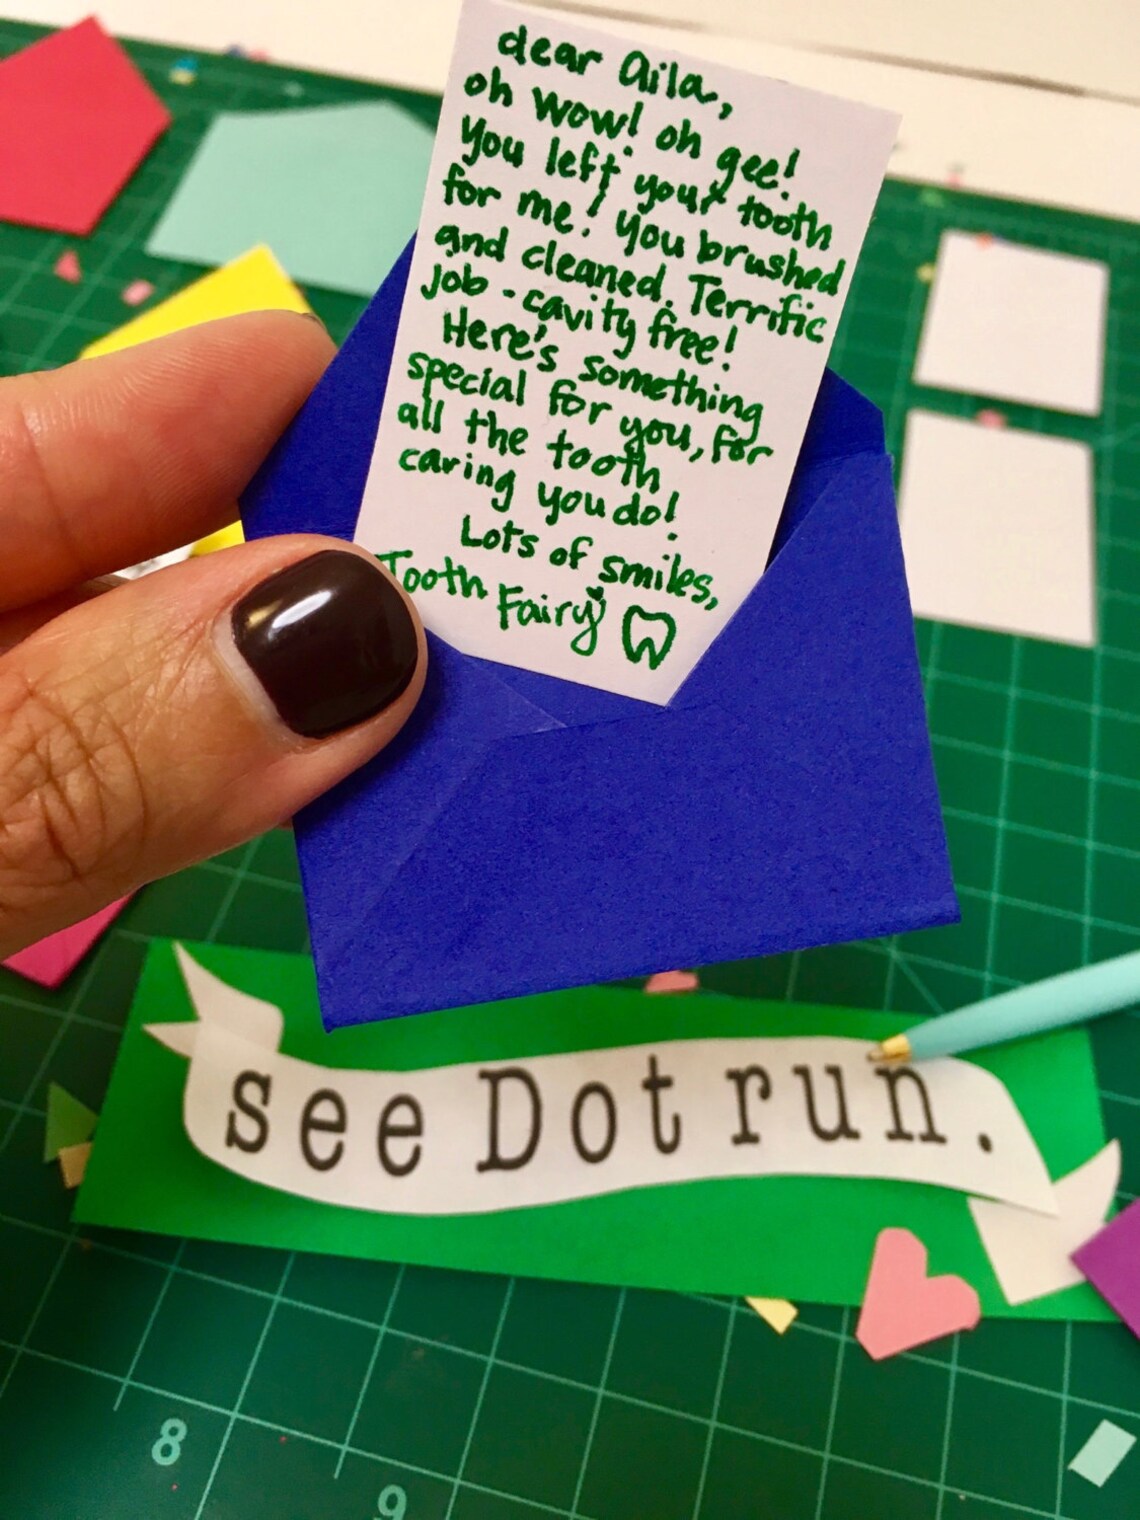 dear Aila,
oh wow! oh gee!
You left your tooth
for me! You brushed
and cleaned. Terrific
job - cavity free!
Here's something
special for you, for
all the tooth
caring you do!
Lots of smiles,
Tooth Fairy
see Dot run.
8
9